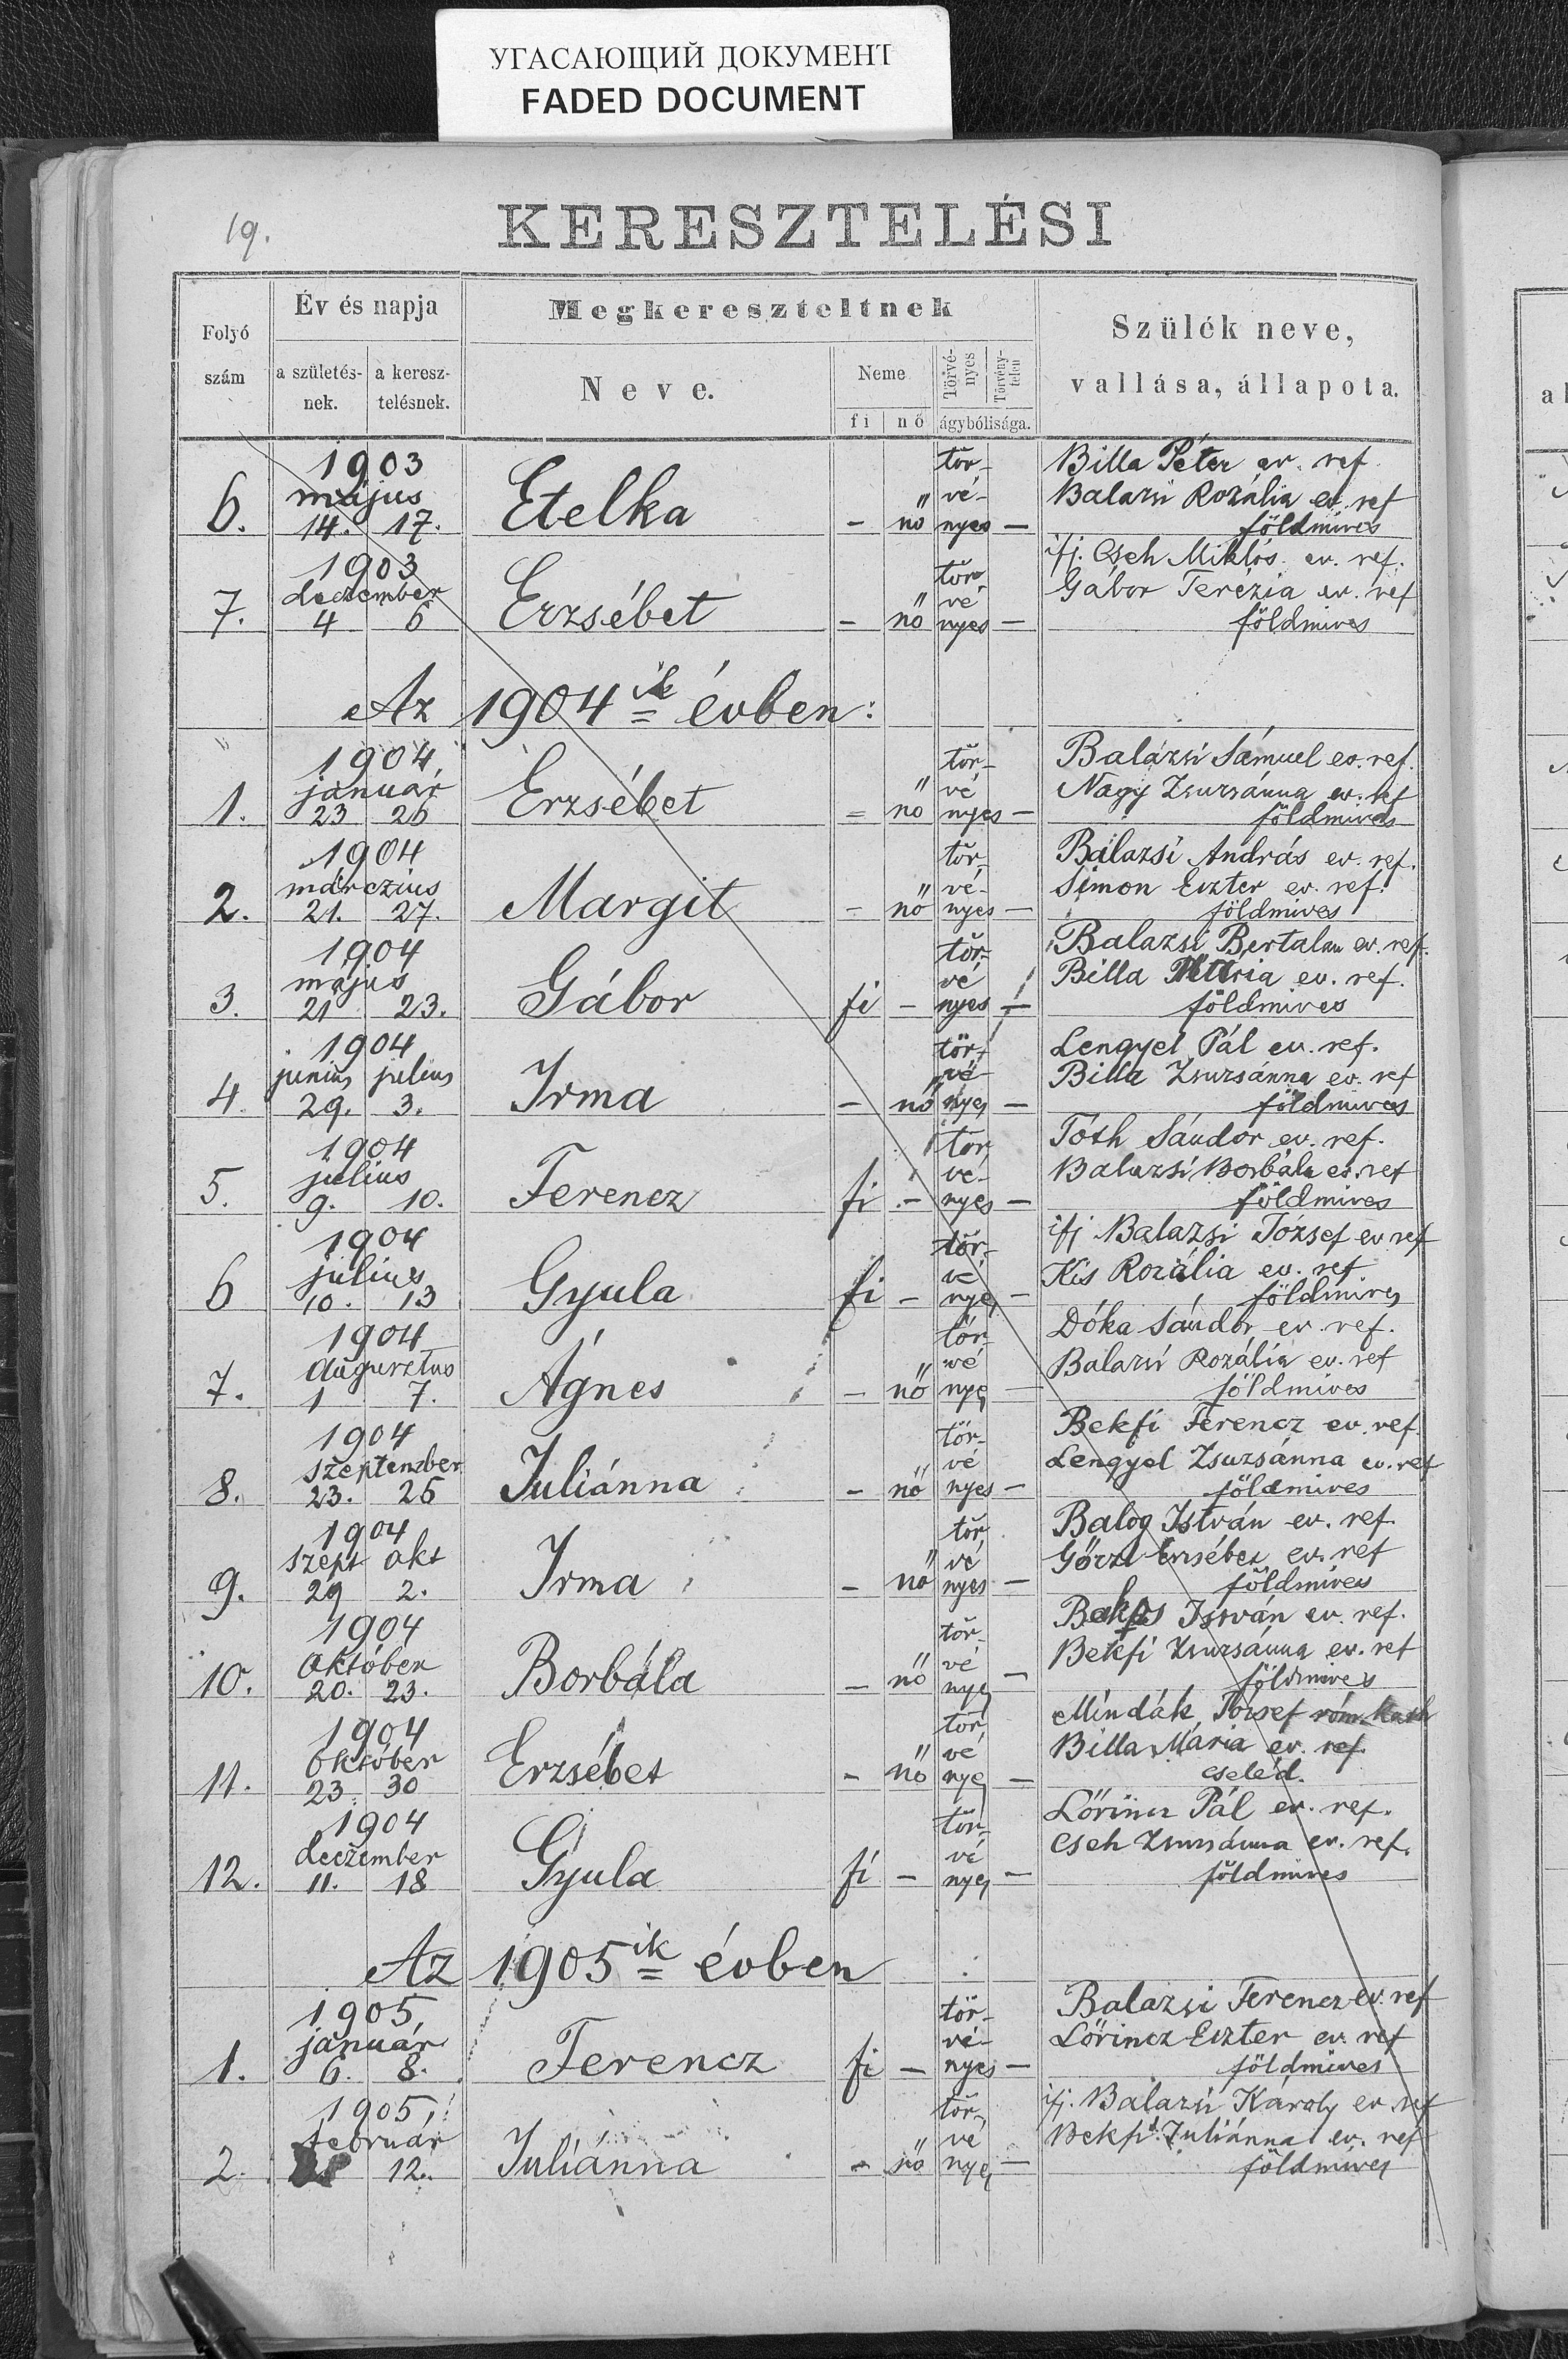 УГАСАЮЩИЙ ДОКУМЕНТ
FADED DOCUMENT
19.
KERESZTELÉSI
Folyó szám
Év és napja
a születés-nek.
a keresz-telésnek.
Megkereszteltnek
Neve.
Neme
fi nő
Törvé-nyes
Törvény-telen
ágybólisága.
Szülék neve,
vallása, állapota.
1903 tör- Billa Péter ev. ref.
május vé- Balazsi Rozália ev. ref
6. 14. 17. Etelka - nő nyes - földmives
1903 tör ifj. Cseh Miklós ev. ref.
deczember vé Gábor Terézia ev. ref
7. 4 6 Erzsébet - nő nyes - földmives
Az 1904 ik évben:
1904 tör- Balázsi Sámuel ev. ref.
január vé Nagy Zsuzsánna ev. ref
1. 23 26 Erzsébet = nő nyes - földmives
1904 tör- Balazsi András ev. ref.
márczius vé- Simon Eszter ev. ref.
2. 21. 27. Margit - nő nyes - földmives
1904 tör- Balazsi Bertalan ev. ref.
május vé Billa Mária ev. ref.
3. 21 23. Gábor fi - nyes - földmives
1904 tör- Lengyel Pál ev. ref.
junius julius vé Billa Zsuzsánna ev. ref
4. 29. 3. Irma - nő nyes - földmives
1904 tör Tóth Sándor ev. ref.
julius vé- Balazsi Borbála ev. ref
5. 9. 10. Ferencz fi - nyes - földmives
1904 tör- ifj Balazsi József ev ref
julius vé Kis Rozália ev. ref
6 10. 13 Gyula fi - nyes - földmives
1904 tör- Dóka Sándor ev. ref.
augusztus vé Balazsi Rozália ev. ref
7. 1 7. Ágnes - nő nyes - földmives
1904 tör- Bekfi Ferencz ev. ref.
szeptember vé Lengyel Zsuzsánna ev. ref
8. 23. 25 Juliánna - nő nyes - földmives
1904 tör Balog István ev. ref.
szept okt vé Erzsébet ev. ref
9. 29 2. Irma - nő nyes - földmives
1904 tör- István ev. ref.
október vé Bekfi Zsuzsánna ev. ref
10. 20. 23. Borbála - nő nyes - földmives
1904 tör Mindák József róm. kath
október vé Billa Mária ev. ref.
11. 23. 30 Erzsébet - nő nyes - cseléd.
1904 tör- Lőrincz Pál ev. ref.
deczember vé Cseh Zsuzsánna ev. ref.
12. 11. 18 Gyula fi - nyes - földmives
Az 1905 ik évben
1905 tör- Balazsi Ferencz ev. ref
január vé- Lőrincz Eszter ev. ref
1. 6. 8. Ferencz fi - nyes - földmives
1905 tör- ifj. Balazsi Károly ev. ref
február vé Bekfi Juliánna ev. ref
2. 12. Juliánna - nő nyes - földmives